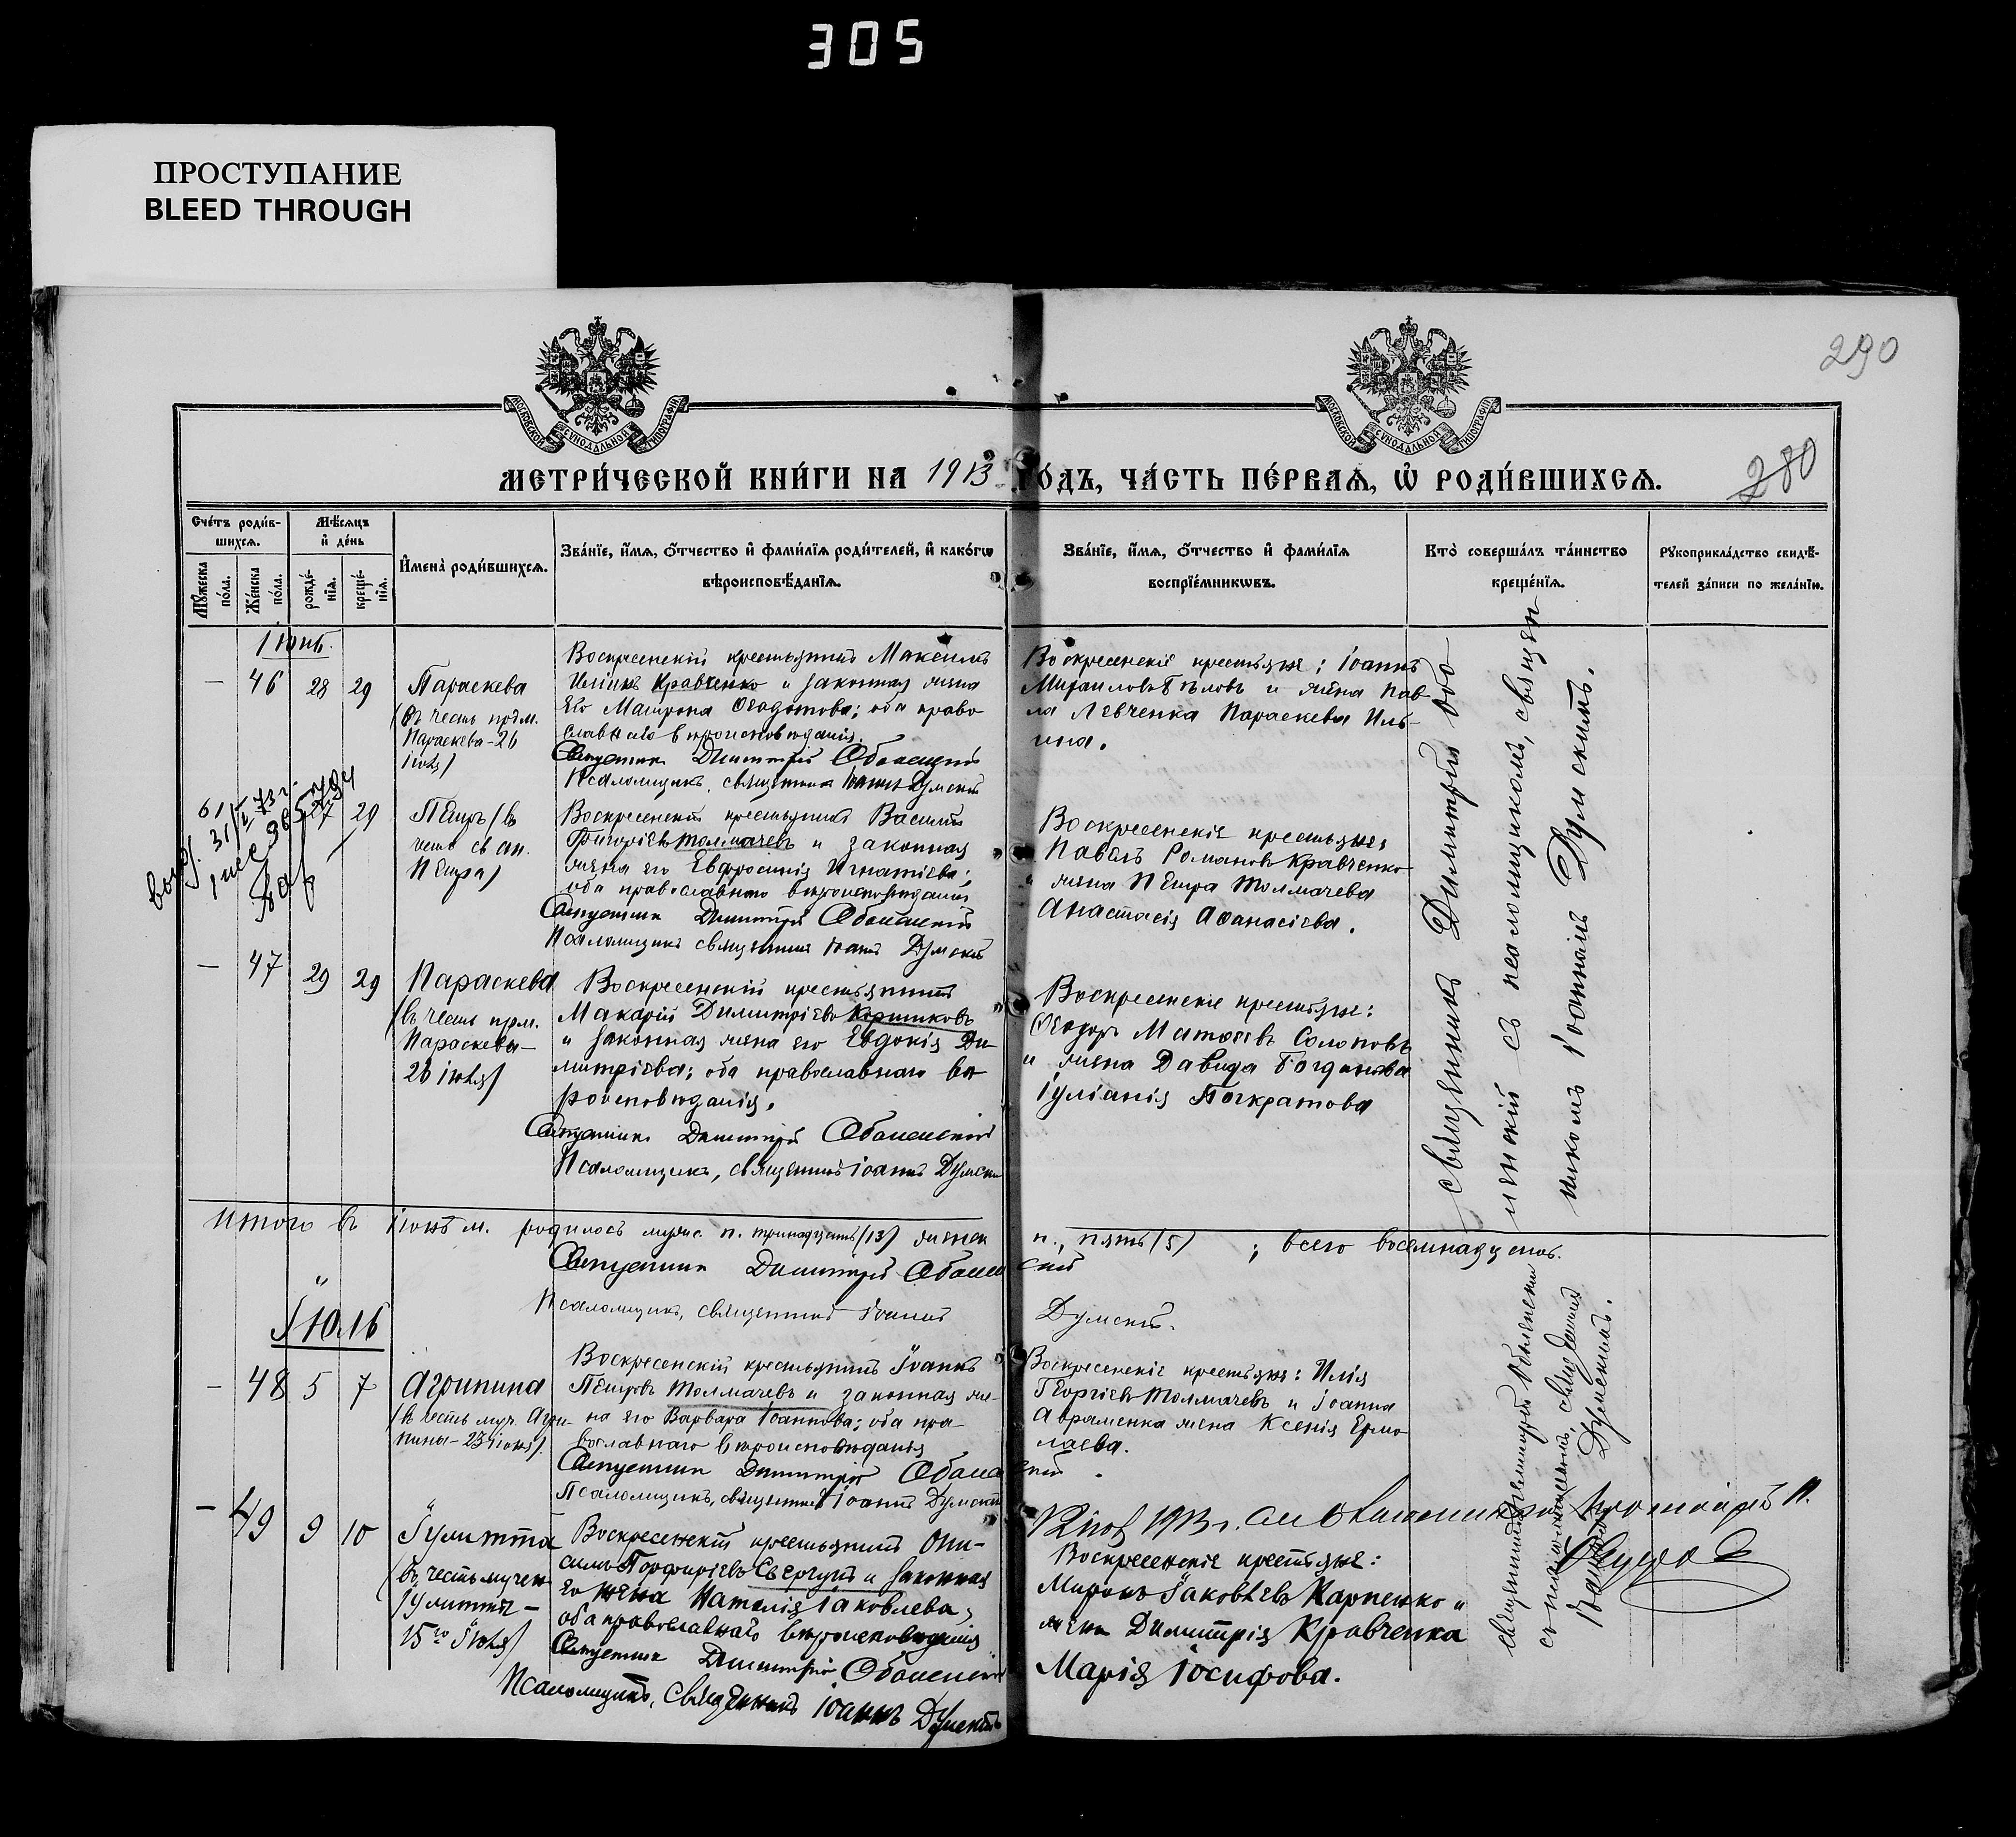 305
ПРОСТУПАНИЕ
BLEED THROUGH
290
280
МОСКОВСКОЙ СѴНОДАЛЬНОЙ ТИПОГРАФІИ
МОСКОВСКОЙ СѴНОДАЛЬНОЙ ТИПОГРАФІИ
МЕТРИ́ЧЕСКОЙ КНИ́ГИ НА 1913 ГО́ДЪ, ЧА́СТЬ ПЕ́РВАѦ, Ѽ РОДИ́ВШИХСѦ.
Сче́тъ роди́в-
шихсѧ.
Мѣ́сѧцъ
и҆ де́нь
Мꙋ́жеска по́ла.
Же́нска по́ла.
рожде́-
нїѧ.
креще́-
нїѧ.
И҆мена̀ роди́вшихсѧ.
Зва́нїе, и҆́мѧ, ѻ҆́тчество и҆ фами́лїѧ роди́телей, и҆ како́гѡ
вѣроисповѣ́данїѧ.
Зва́нїе, и҆́мѧ, ѻ҆́тчество и҆ фами́лїѧ
воспрїе́мникѡвъ.
Кто̀ соверша́лъ та́инство
креще́нїѧ.
Рꙋкоприкла́дство свидѣ́-
телей за́писи по жела́нїю.
Іюнь.
— 46 28 29 Параскева
(въ честь прдм.
Параскева - 26
іюля)
Воскресенскій крестьянинъ Максимъ
Кравченко и законная жена
его Матрона Ѳеодотова; оба право
славнаго вѣроисповѣданія.
Священникъ Димитрій Оболенскій
Псаломщикъ, священникъ Іоаннъ Думскій
Воскресенскіе крестьяне: Іоаннъ
Михаиловъ Бѣловъ и жена Пав-
ла Левченка Параскева Иль-
ина.
61
27 29 Петръ (въ
честь св ап.
Петра)
Воскресенскій крестьянинъ Василій
Григоріевъ Толмачевъ и законная
жена его Евфросинія Игнатіева;
оба православнаго вѣроисповѣданія
Священникъ Димитрій Оболенскій
Псаломщикъ священникъ Іоаннъ Думскій
Воскресенскіе крестьяне:
Павелъ Романовъ Кравченко
и жена Петра Толмачева
Анастасія Аѳанасіева.
— 47 29 29 Параскева
(въ честь прм.
Параскевы -
26 іюля)
Воскресенскій крестьянинъ
Макарій Димитріевъ
и законная жена его Евдокія Ди-
митріева; оба православнаго вѣ-
роисповѣданія.
Священникъ Димитрій Оболенскій
Псаломщикъ, священникъ Іоаннъ Думскій
Воскресенскіе крестьяне:
Ѳеодоръ Матѳеевъ Солоповъ
и жена Давида Богданова
Іуліанія Панкратова
Священникъ Димитрій Обо-
ленскій съ псаломщикомъ, священ-
никомъ Іоанномъ Думскимъ.
Итого въ Іюнѣ м. родилось мужс. п. тринадцать (13) женск п., пять (5) ; всего восемнадцать.
Священникъ Димитрій Оболенскій
Псаломщикъ, священникъ Іоаннъ Думскій.
Іюль
— 48 5 7 Агрипина
(въ честь муч. Агри-
пины - 23 іюня).
Воскресенскій крестьянинъ Іоаннъ
Петровъ Толмачевъ и законная же-
на его Варвара Іоаннова; оба пра-
вославнаго вѣроисповѣданія
Священникъ Димитрій Оболенскій
Псаломщикъ, священникъ Іоаннъ Думскій
Воскресенскіе крестьяне: Илія
Георгіевъ Толмачевъ и Іоанна
Авраменка жена Ксенія Ермо
лаева.
— 49 9 10 Іулитта
(въ честь мучен
Іулитты -
15го Іюля)
Воскресенскій крестьянинъ Они-
симъ Порфиріевъ Свергунъ и законная
его жена Наталія Іаковлева;
оба православнаго вѣроисповѣданія
Священникъ Димитрій Оболенскій
Псаломщикъ, священникъ Іоаннъ Думскій
1913 г.
Воскресенскіе крестьяне:
Миронъ Іаковлевъ Карпенко и
жена Димитрія Кравченка
Марія Іосифова.
Священникъ Димитрій Оболенскій
съ псаломщикомъ, священникомъ
Іоанномъ Думскимъ.